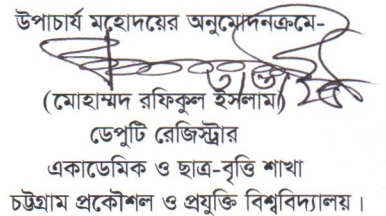 উপাচার্য মহোদয়ের অনুমোদনক্রমে-
(মোহাম্মদ রফিকুল ইসলাম)
ডেপুটি রেজিস্ট্রার
একাডেমিক ও ছাত্র-বৃত্তি শাখা
চট্টগ্রাম প্রকৌশল ও প্রযুক্তি বিশ্ববিদ্যালয়।